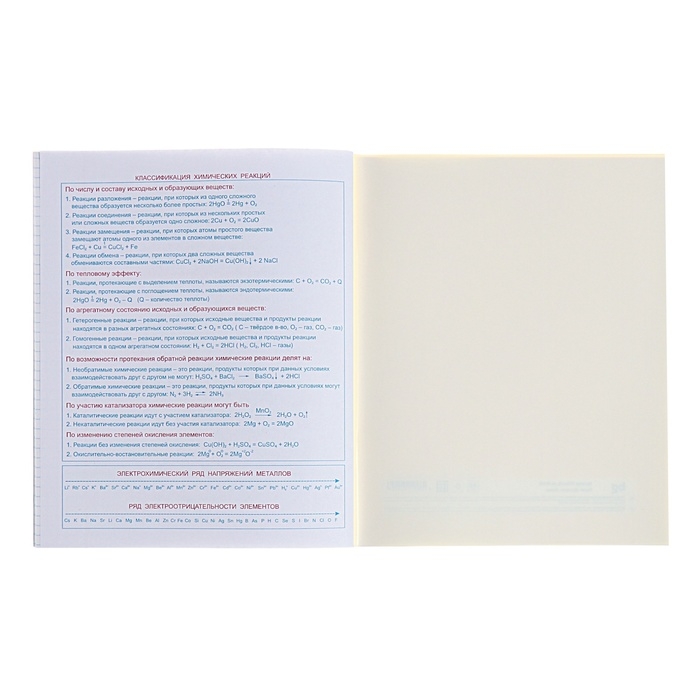 КЛАССИФИКАЦИЯ ХИМИЧЕСКИХ РЕАКЦИЙ
По числу и составу исходных и образующих веществ:
1. Реакции разложения – реакции, при которых из одного сложного
вещества образуется несколько более простых: 2HgO ≟ 2Hg + O₂
2. Реакции соединения – реакции, при которых из нескольких простых
или сложных веществ образуется одно сложное: 2Cu + O₂ = 2CuO
3. Реакции замещения – реакции, при которых атомы простого вещества
замещают атомы одного из элементов в сложном веществе:
FeCl₂ + Cu = CuCl₂ + Fe
4. Реакции обмена – реакции, при которых два сложных вещества
обмениваются составными частями: CuCl₂ + 2NaOH = Cu(OH)₂↓ + 2 NaCl
По тепловому эффекту:
1. Реакции, протекающие с выделением теплоты, называются экзотермическими: C + O₂ = CO₂ + Q
2. Реакции, протекающие с поглощением теплоты, называются эндотермическими:
2HgO ≟ 2Hg + O₂ – Q (Q – количество теплоты)
По агрегатному состоянию исходных и образующихся веществ:
1. Гетерогенные реакции – реакции, при которых исходные вещества и продукты реакции
находятся в разных агрегатных состояниях: C + O₂ = CO₂ ( C – твёрдое в-во, O₂ – газ, CO₂ – газ)
2. Гомогенные реакции – реакции, при которых исходные вещества и продукты реакции
находятся в одном агрегатном состоянии: H₂ + Cl₂ = 2HCl ( H₂, Cl₂, HCl – газы)
По возможности протекания обратной реакции химические реакции делят на:
1. Необратимые химические реакции – это реакции, продукты которых при данных условиях
взаимодействовать друг с другом не могут: H₂SO₄ + BaCl₂ → BaSO₄↓ + 2HCl
2. Обратимые химические реакции – это реакции, продукты которых при данных условиях могут
взаимодействовать друг с другом: N₂ + 3H₂ ⇄ 2NH₃
По участию катализатора химические реакции могут быть
1. Каталитические реакции идут с участием катализатора: 2H₂O₂ MnO₂→ 2H₂O + O₂↑
2. Некаталитические реакции идут без участия катализатора: 2Mg + O₂ = 2MgO
По изменению степеней окисления элементов:
1. Реакции без изменения степеней окисления: Cu(OH)₂ + H₂SO₄ = CuSO₄ + 2H₂O
2. Окислительно-востановительные реакции: 2Mg⁰ + O₂⁰ = 2Mg⁺²O⁻²
ЭЛЕКТРОХИМИЧЕСКИЙ РЯД НАПРЯЖЕНИЙ МЕТАЛЛОВ
РЯД ЭЛЕКТРООТРИЦАТЕЛЬНОСТИ ЭЛЕМЕНТОВ